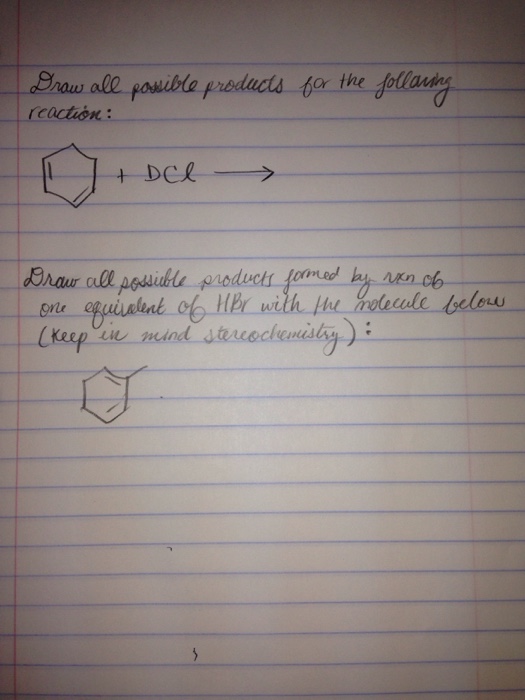 Draw all possible products for the following
reaction:
+ DCl →
Draw all possible products formed by rxn of
one equivalent of HBr with the molecule below
(keep in mind stereochemistry):